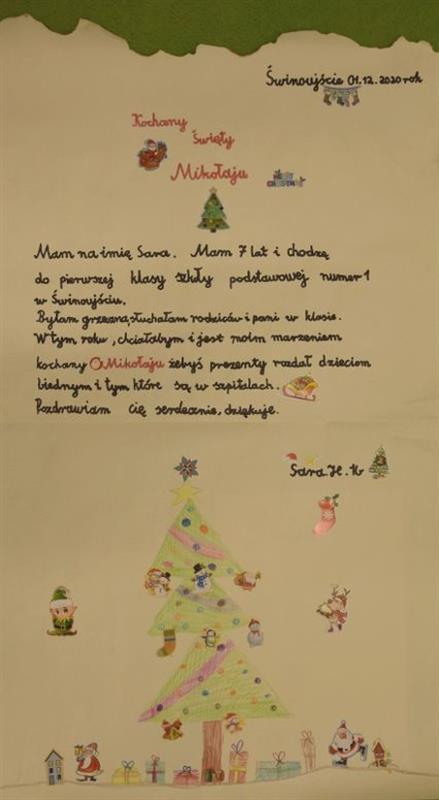 Świnoujście 01.12.2020 rok
Kochany
Święty
Mikołaju
Mam na imię Sara. Mam 7 lat i chodzę
do pierwszej klasy szkły podstawowej numer 1
w Świnoujściu.
Byłam grzeczna, słuchałam rodziców i pani w klasie.
W tym roku, chciałabym i jest moim marzeniem
kochany Mikołaju żebyś prezenty rozdał dzieciom
biednym i tym które są w szpitalach.
Pozdrawiam cię serdecznie, dziękuję.
Sara. H. K